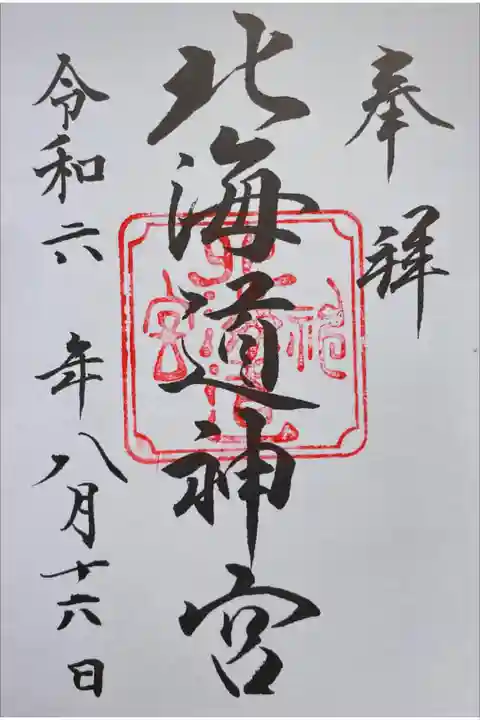 奉拝
北海道神宮
令和六年八月十六日